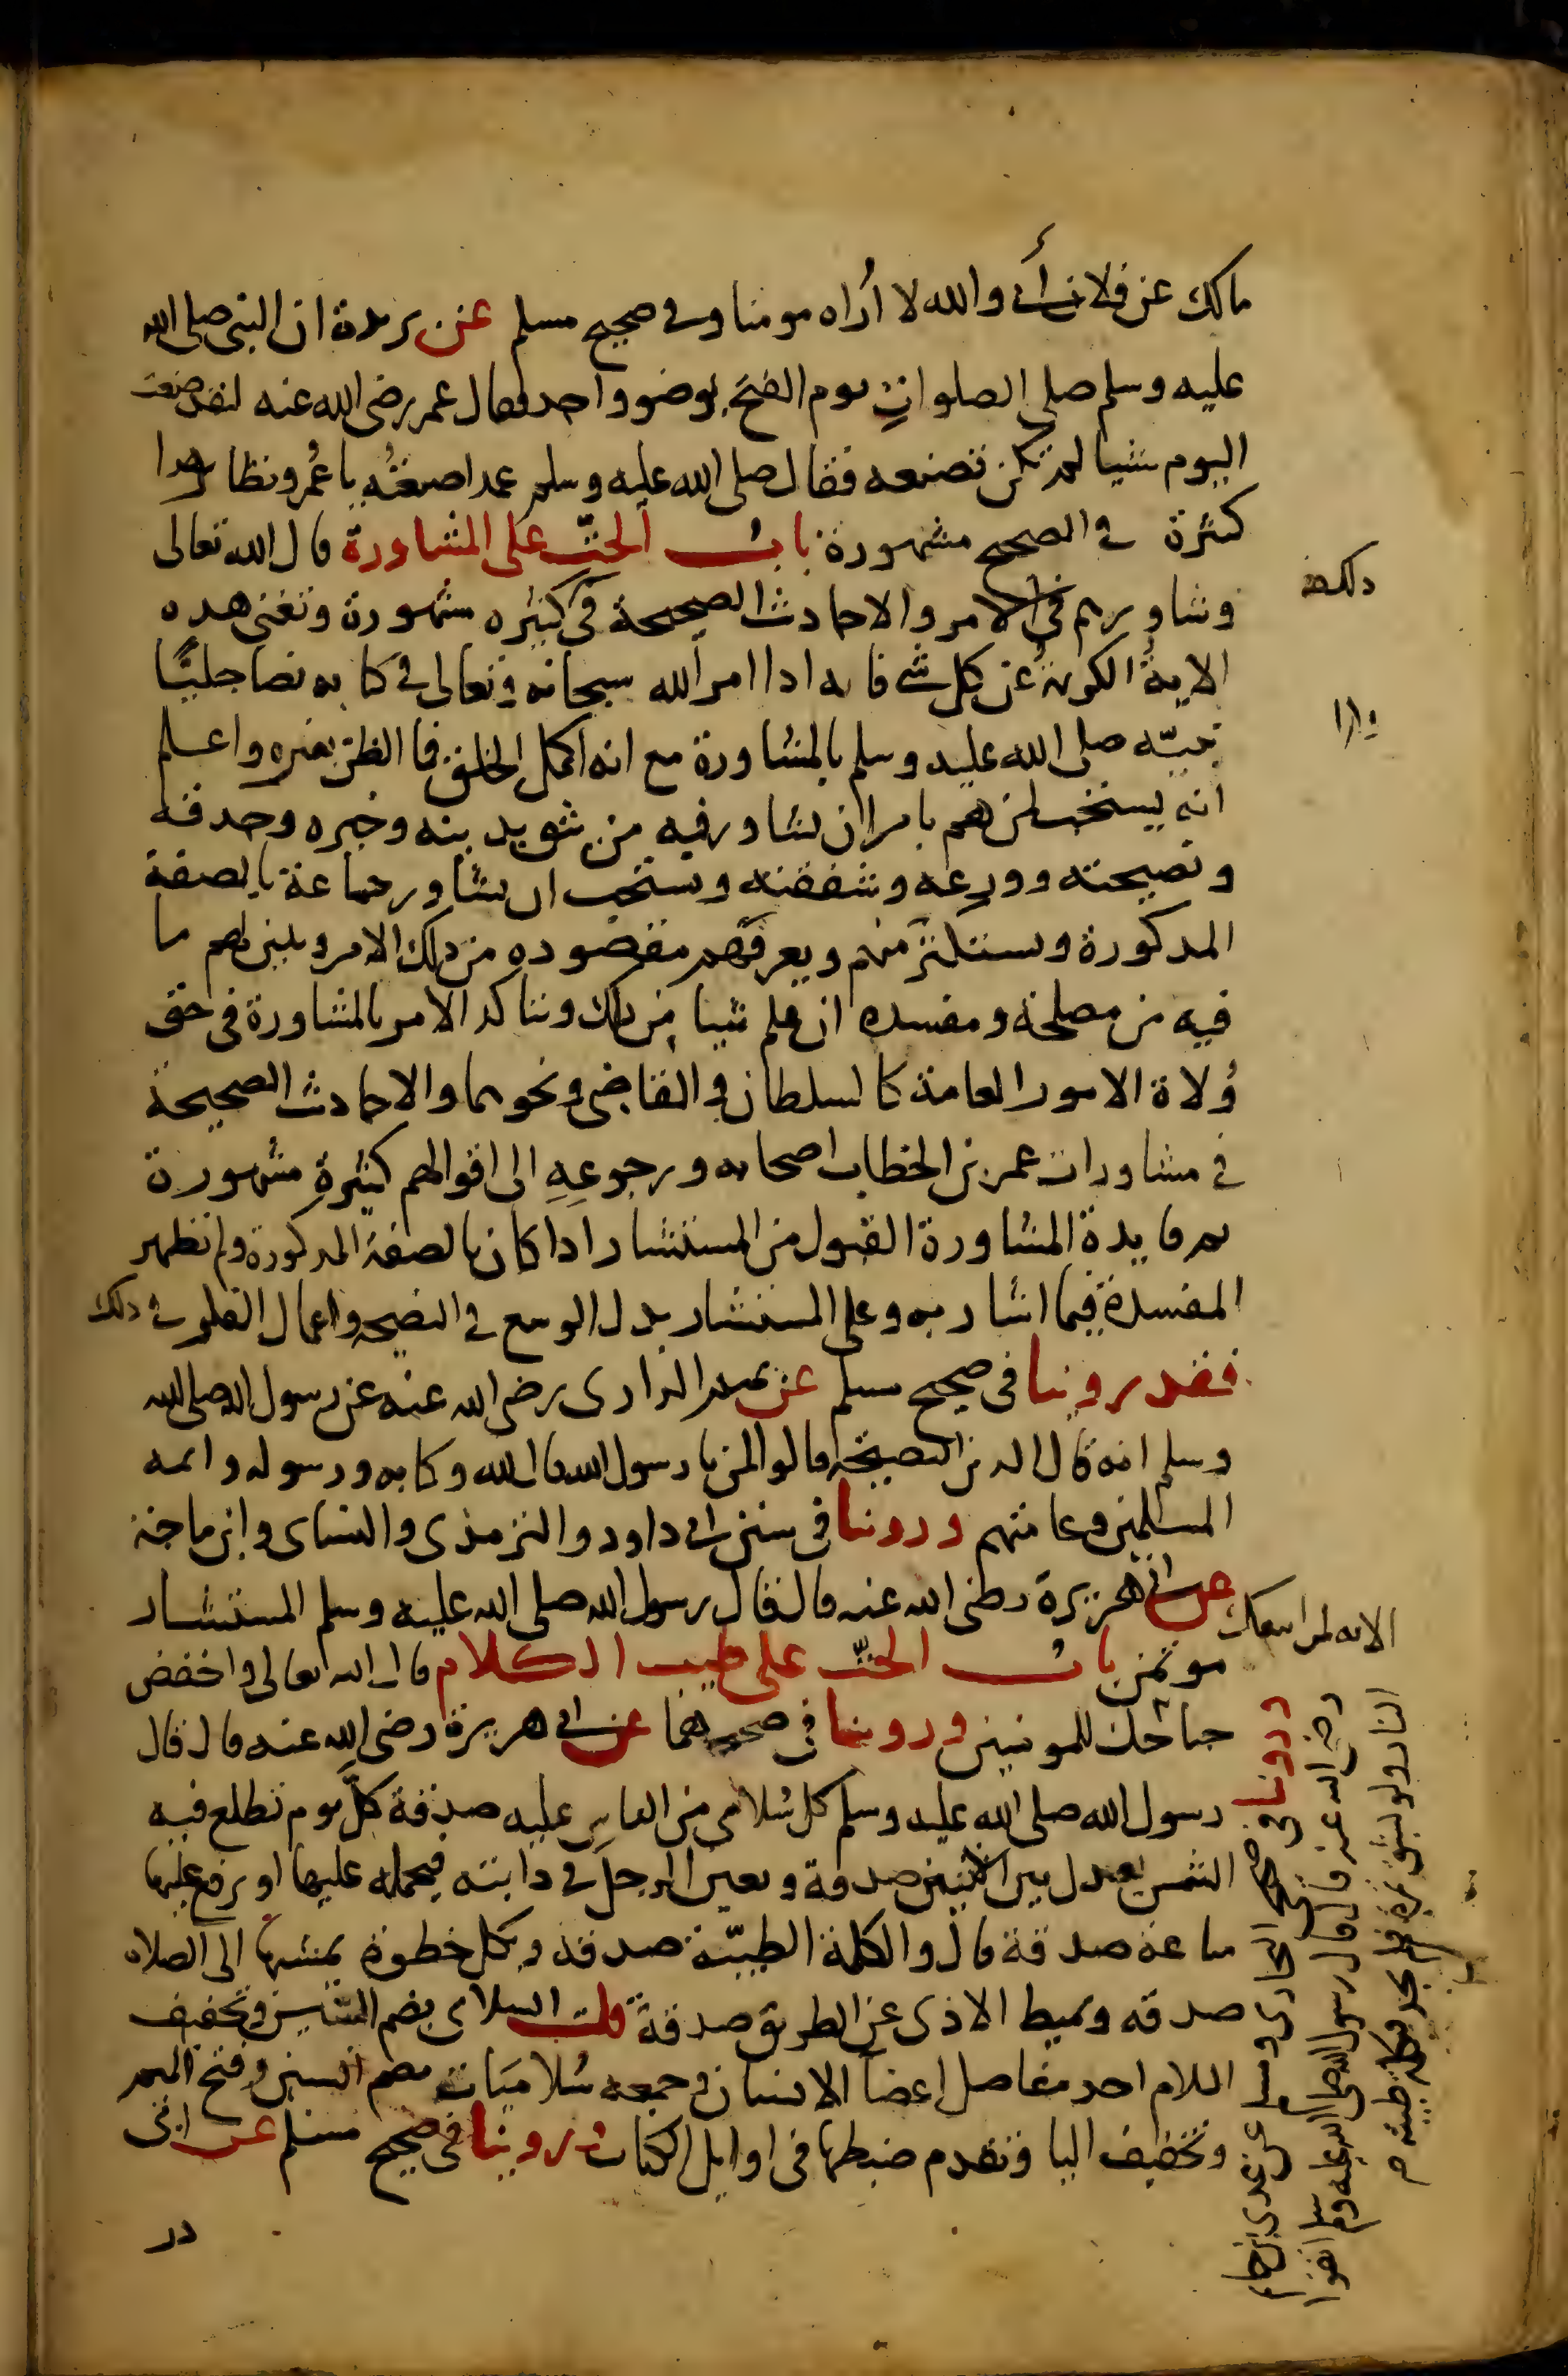 مالك عن فلان أي والله لا أراه مومنا وفي صحيح مسلم عن بريدة ان النبي صلى الله
عليه وسلم صلى الصلوات يوم الفتح بوضو واحد فقال عمر رضي الله عنه لقد صنعت
اليوم شيا لم تكن تصنعه فقال صلى الله عليه وسلم عمدا صنعته يا عمر ونظاير هذا
كثيرة في الصحيح مشهورة باب الحث على المشاورة قال الله تعالى
وشاورهم في الامر والاحاديث الصحيحة في كثيره مشهورة وتغني هذه
الاية الكريمة عن كل شي فانه اذا امر الله سبحانه وتعالى في كتابه نصا جليا
نبيه صلى الله عليه وسلم بالمشاورة مع انه اكمل الخلق فما الظن بغيره واعلم
انه يستحب لمن هم بامر ان يشاور فيه من يثق بدينه وخبره وحدقه
ونصيحته وورعه وشفقته ويستحب ان يشاور جماعة بالصفة
المذكورة ويستكثر منهم ويعرفهم مقصوده من ذلك الامر ويبين لهم ما
فيه من مصلحة ومفسده ان علم شيا من ذلك ويتاكد الامر بالمشاورة في حق
ولاة الامور العامة كالسلطان والقاضي ونحوهما والاحاديث الصحيحة
في مشاورات عمر بن الخطاب اصحابه ورجوعه الى اقوالهم كثيرة مشهورة
ثم فايدة المشاورة القبول من المستشار اذا كان بالصفة المذكورة ولم تظهر
المفسدة فيما اشار به وعلى المستشار بذل الوسع في النصيحة واعمال الفكر في ذلك
فقد روينا في صحيح مسلم عن تميم الداري رضي الله عنه عن رسول الله صلى الله
وسلم انه قال الدين النصيحة قالوا لمن يا رسول الله قال لله وكتابه ورسوله وايمه
المسلمين وعامتهم وروينا في سنن ابي داود والترمذي والنساي وابن ماجة
عن ابي هريرة رضي الله عنه قال قال رسول الله صلى الله عليه وسلم المستشار
موتمن باب الحث على طيب الكلام قال الله تعالى واخفض
جناحك للمومنين وروينا في صحيحهما عن ابي هريرة رضي الله عنه قال قال
رسول الله صلى الله عليه وسلم كل سلامى من الناس عليه صدقة كل يوم تطلع فيه
الشمس يعدل بين الاثنين صدقة ويعين الرجل في دابته فيحمله عليها او يرفع عليها
متاعه صدقة قال والكلمة الطيبة صدقة وبكل خطوة يمشيها الى الصلاه
صدقه ويميط الاذى عن الطريق صدقة قلت السلامى بضم السين وتخفيف
اللام احد مفاصل اعضا الانسان وجمعه سلاميات بضم السين وفتح الميم
وتخفيف اليا وتقدم ضبطها في اوايل الكتاب وروينا في صحيح مسلم عن ابي
ذر
ذلك
وروينا في صحيحي البخاري ومسلم عن عدي بن حاتم
رضي الله عنه قال قال رسول الله صلى الله عليه وسلم اتقوا
النار ولو بشق تمرة فمن لم يجد فبكلمة طيبة